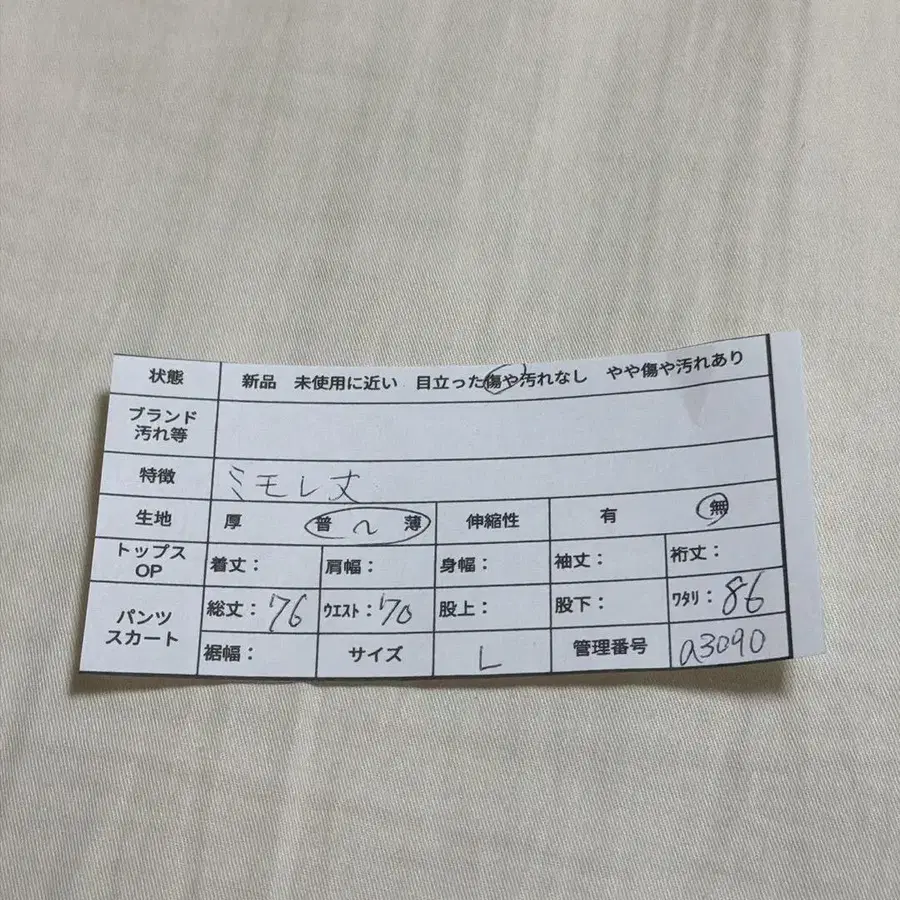 状態 新品 未使用に近い 目立った傷や汚れなし やや傷や汚れあり
ブランド
汚れ等
特徴 ミモレ丈
生地 厚 普 〜 薄 伸縮性 有 無
トップス
OP
着丈： 肩幅： 身幅： 袖丈： 裄丈：
パンツ
スカート
総丈：76 ウエスト：70 股上： 股下： ワタリ：86
裾幅： サイズ L 管理番号 a3090